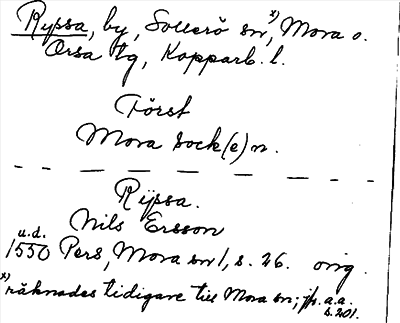 Ryssa, by, Sollerö sn, x) Mora o.
Orsa tg, Kopparb. l.
Först
Mora Sock(e)n.
Rÿssa.
Nils Ersson
u.d.
1550 Pers, Mora sn 1, s. 26. orig.
x) räknades tidigare till Mora sn; jfr a.a.
s. 201.